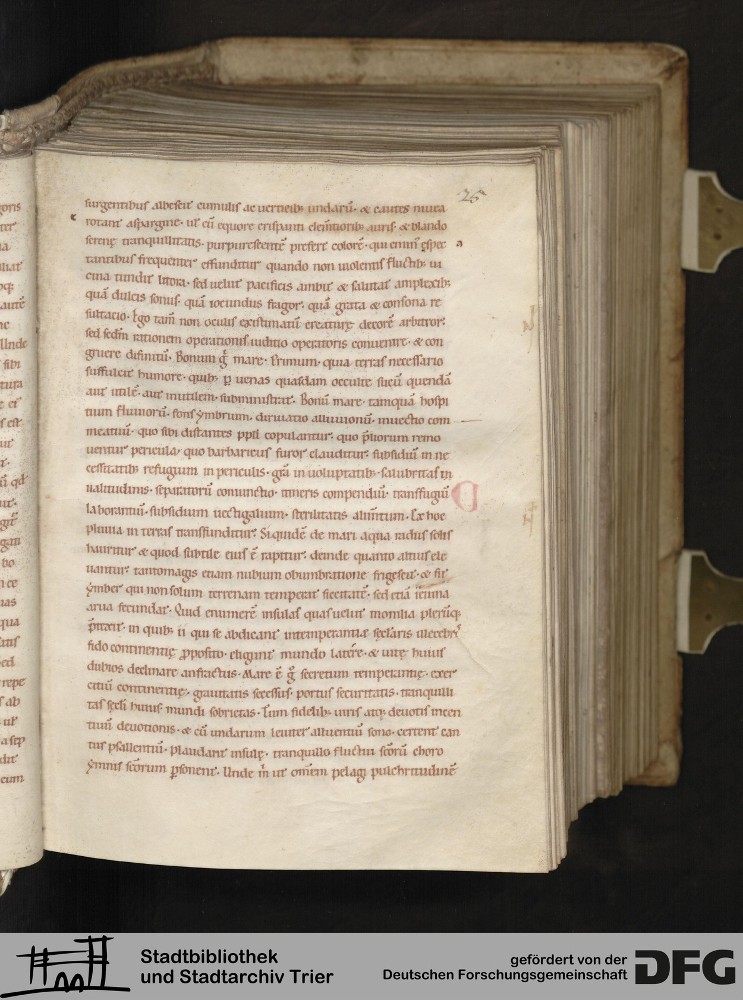 25
surgentibus albescit cumulis ac verticib; undarū· & cautes niveā
rorant aspargine· ul' cū equore crispanti clem̄tiorib; auris· & blando
serenę tranquillitatis· purpurescentē prefert colorē· qui eminꝰ ęspec
tantibus frequenter effunditur quando non violentis fluctib; ui
cina tundit litora· sed velut pacificis ambit & salutat amplexib;
quā dulcis sonus· quā iocundus fragor· quā grata & consona re
sultatio· Ego tam̄ non oculis existimatū creaturę decorē arbitror:
sed sedm̄ rationem operationis iuditio operatoris convenire· & con
gruere difinitū· Bonum g̊ mare· Primum· quia terras necessario
suffulcit humore· quib; p̱ uenas quasdam occulte sucū quendā
aut utilē· aut inutilem subministrat· Bonū mare· tamquā hospi
tium fluviorū· fons ymbrium· dirivatio alluvionū· invectio com
meatuū· quo sibi distantes pp̄li copulantur: quo p̄liorum remo
ventur pericula· quo barbaricus furor clauditur: subsidiū in ne
cessitatib; refugium in periculis· grā in voluptatib; salubritas in
valitudinis· separatorū coniunctio· itineris compendiū· transfugiū
laborantiū· subsidium vectigalium· sterilitatis alim̄tum· Ex hoc
pluvia in terras transfunditur: Siquidē de mari aqua radiis solis
hauritur & quod subtile eius ē rapitur: deinde quanto altius ele
vantur: tantomagis etiam nubium obumbratione frigescit· & fit
ymber qui non solum terrenam temperat siccitatē· sed etiā ieiuna
arua fecundat· Quid enumerē insulas quas velut monilia plerūq;
p̄texit· in quib; ii qui se abdicant intemperantia sęcularis illecebrę
fido continentię p̱posito· eligunt mundo latēre· & vitę huius
dubios declinare anfractus· Mare ē g̊ secretum temperantię· exer
citiū continentię· gravitatis secessus· portus securitatis· tranquilli
tas sęcli huius· mundi sobrietas· Tum fidelib; viris atq; devotis incen
tivū devotionis· & cū undarum leniter alluentiū sono· certent can
tus psallentiū· plaudant insulę· tranquillo fluctuū scōrū choro
ymnis scōrum p̱sonent· Unde m̄ ut om̄em pelagi pulchritudinē
Stadtbibliothek
und Stadtarchiv Trier
gefördert von der
Deutschen Forschungsgemeinschaft
DFG